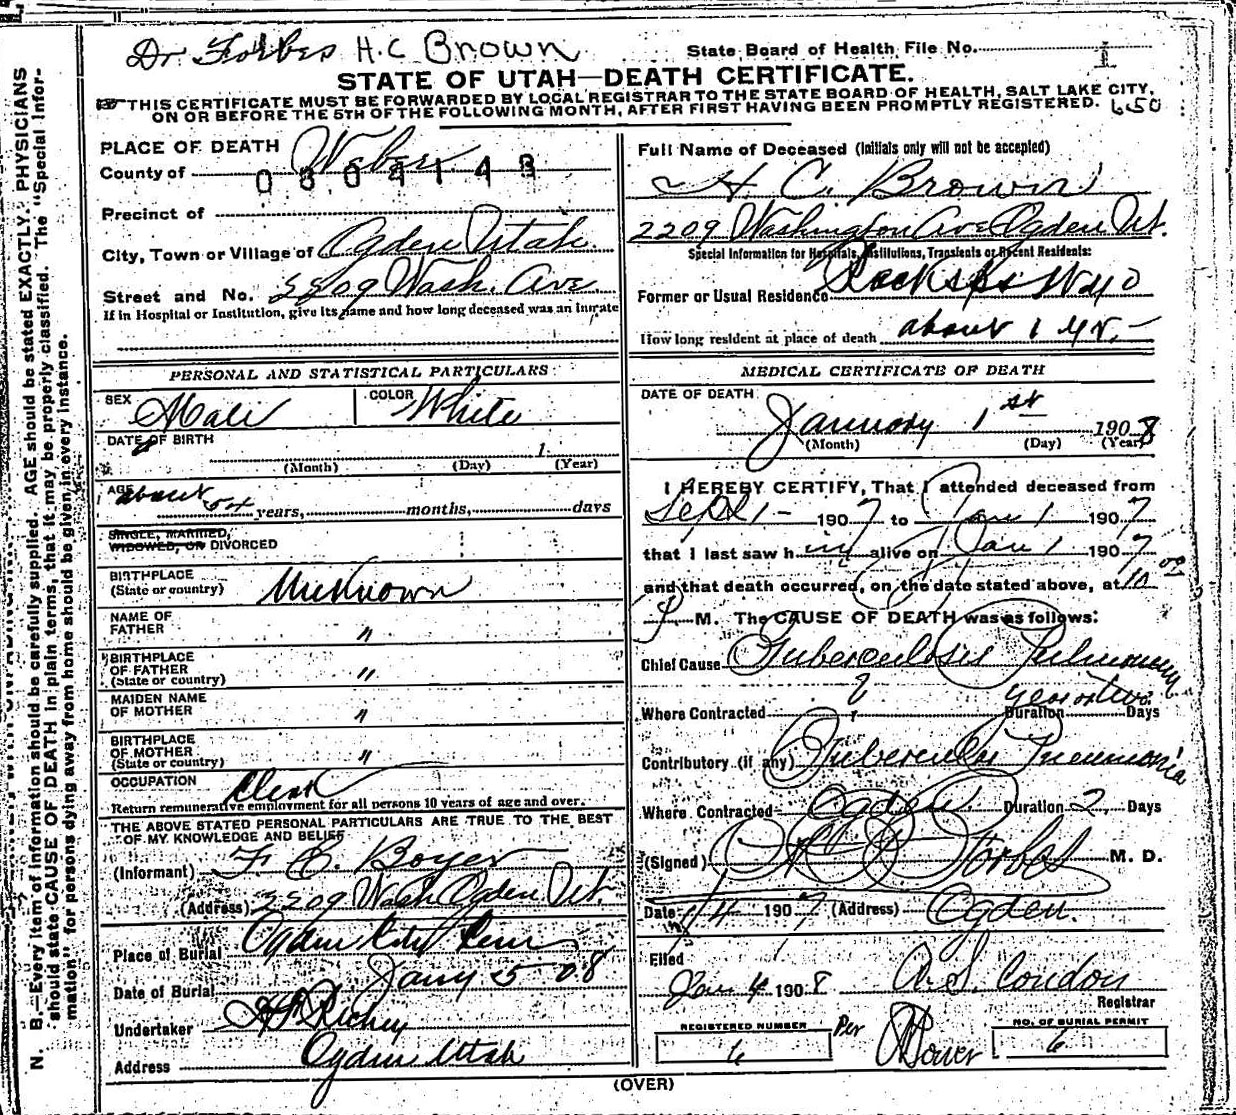 Dr. Forbes H.C Brown
State Board of Health File No. 1
STATE OF UTAH—DEATH CERTIFICATE.
THIS CERTIFICATE MUST BE FORWARDED BY LOCAL REGISTRAR TO THE STATE BOARD OF HEALTH, SALT LAKE CITY,
ON OR BEFORE THE 5TH OF THE FOLLOWING MONTH, AFTER FIRST HAVING BEEN PROMPTLY REGISTERED. 650
PLACE OF DEATH
County of Weber
Precinct of
City, Town or Village of Ogden Utah
Street and No. 2209 Wash. Ave
If in Hospital or Institution, give its name and how long deceased was an inmate
PERSONAL AND STATISTICAL PARTICULARS
SEX Male COLOR White
DATE OF BIRTH 1
(Month) (Day) (Year)
AGE about 54 years, months, days
SINGLE, MARRIED,
WIDOWED, OR DIVORCED
BIRTHPLACE
(State or country) Unknown
NAME OF
FATHER "
BIRTHPLACE
OF FATHER
(State or country) "
MAIDEN NAME
OF MOTHER "
BIRTHPLACE
OF MOTHER
(State or country) "
OCCUPATION Clerk
Return remunerative employment for all persons 10 years of age and over.
THE ABOVE STATED PERSONAL PARTICULARS ARE TRUE TO THE BEST
OF MY KNOWLEDGE AND BELIEF
(Informant) F. C. Boyer
(Address) 2209 Wash Ogden Ut.
Place of Burial Ogden City Cem
Date of Burial Jany 5 08
Undertaker Richey
Address Ogden Utah
Full Name of Deceased (Initials only will not be accepted)
H C. Brown
2209 Washington Ave Ogden Ut.
Special Information for Hospitals, Institutions, Transients or Recent Residents:
Former or Usual Residence Rock Spgs Wyo
How long resident at place of death about 1 yr.
MEDICAL CERTIFICATE OF DEATH
DATE OF DEATH
January 1st 1908
(Month) (Day) (Year)
I HEREBY CERTIFY, That I attended deceased from
Sept 1 - 1907 to Jan 1 1907
that I last saw him alive on Jan 1 1907
and that death occurred, on the date stated above, at 10
P M. The CAUSE OF DEATH was as follows:
Chief Cause Tuberculosis Pulmonary
Where Contracted ? Duration year or two Days
Contributory (if any) Tubercular Pneumonia
Where Contracted Ogden Duration 2 Days
(Signed) Forbes M. D.
Date 1/4 1907 (Address) Ogden.
Filed
Jan 4 1908 A. S. Condon
Registrar
REGISTERED NUMBER
6
Per
NO. OF BURIAL PERMIT
6
(OVER)
N. B.—Every item of information should be carefully supplied. AGE should be stated EXACTLY. PHYSICIANS
should state CAUSE OF DEATH in plain terms, that it may be properly classified. The "Special Infor-
mation" for persons dying away from home should be given in every instance.